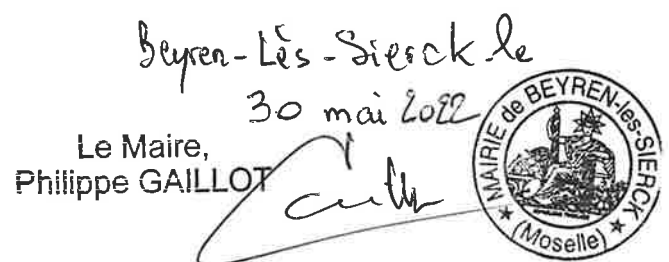 Beyren-Lès-Sierck le
30 mai 2022
Le Maire,
Philippe GAILLOT
MAIRIE de BEYREN-les-SIERCK
★ (Moselle) ★